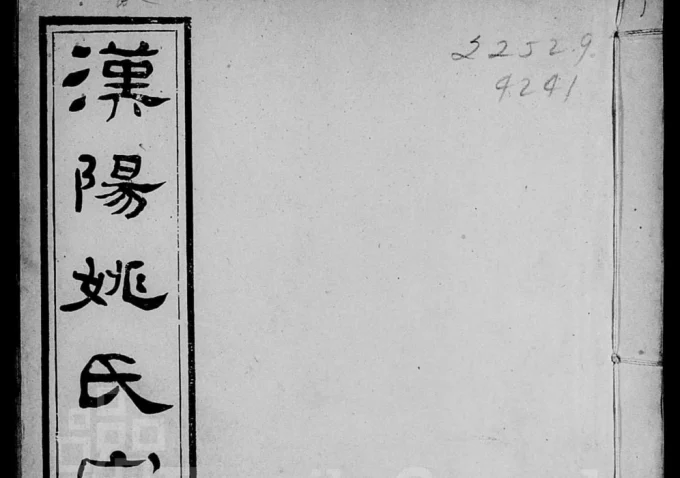 漢陽姚氏
22529.
4241